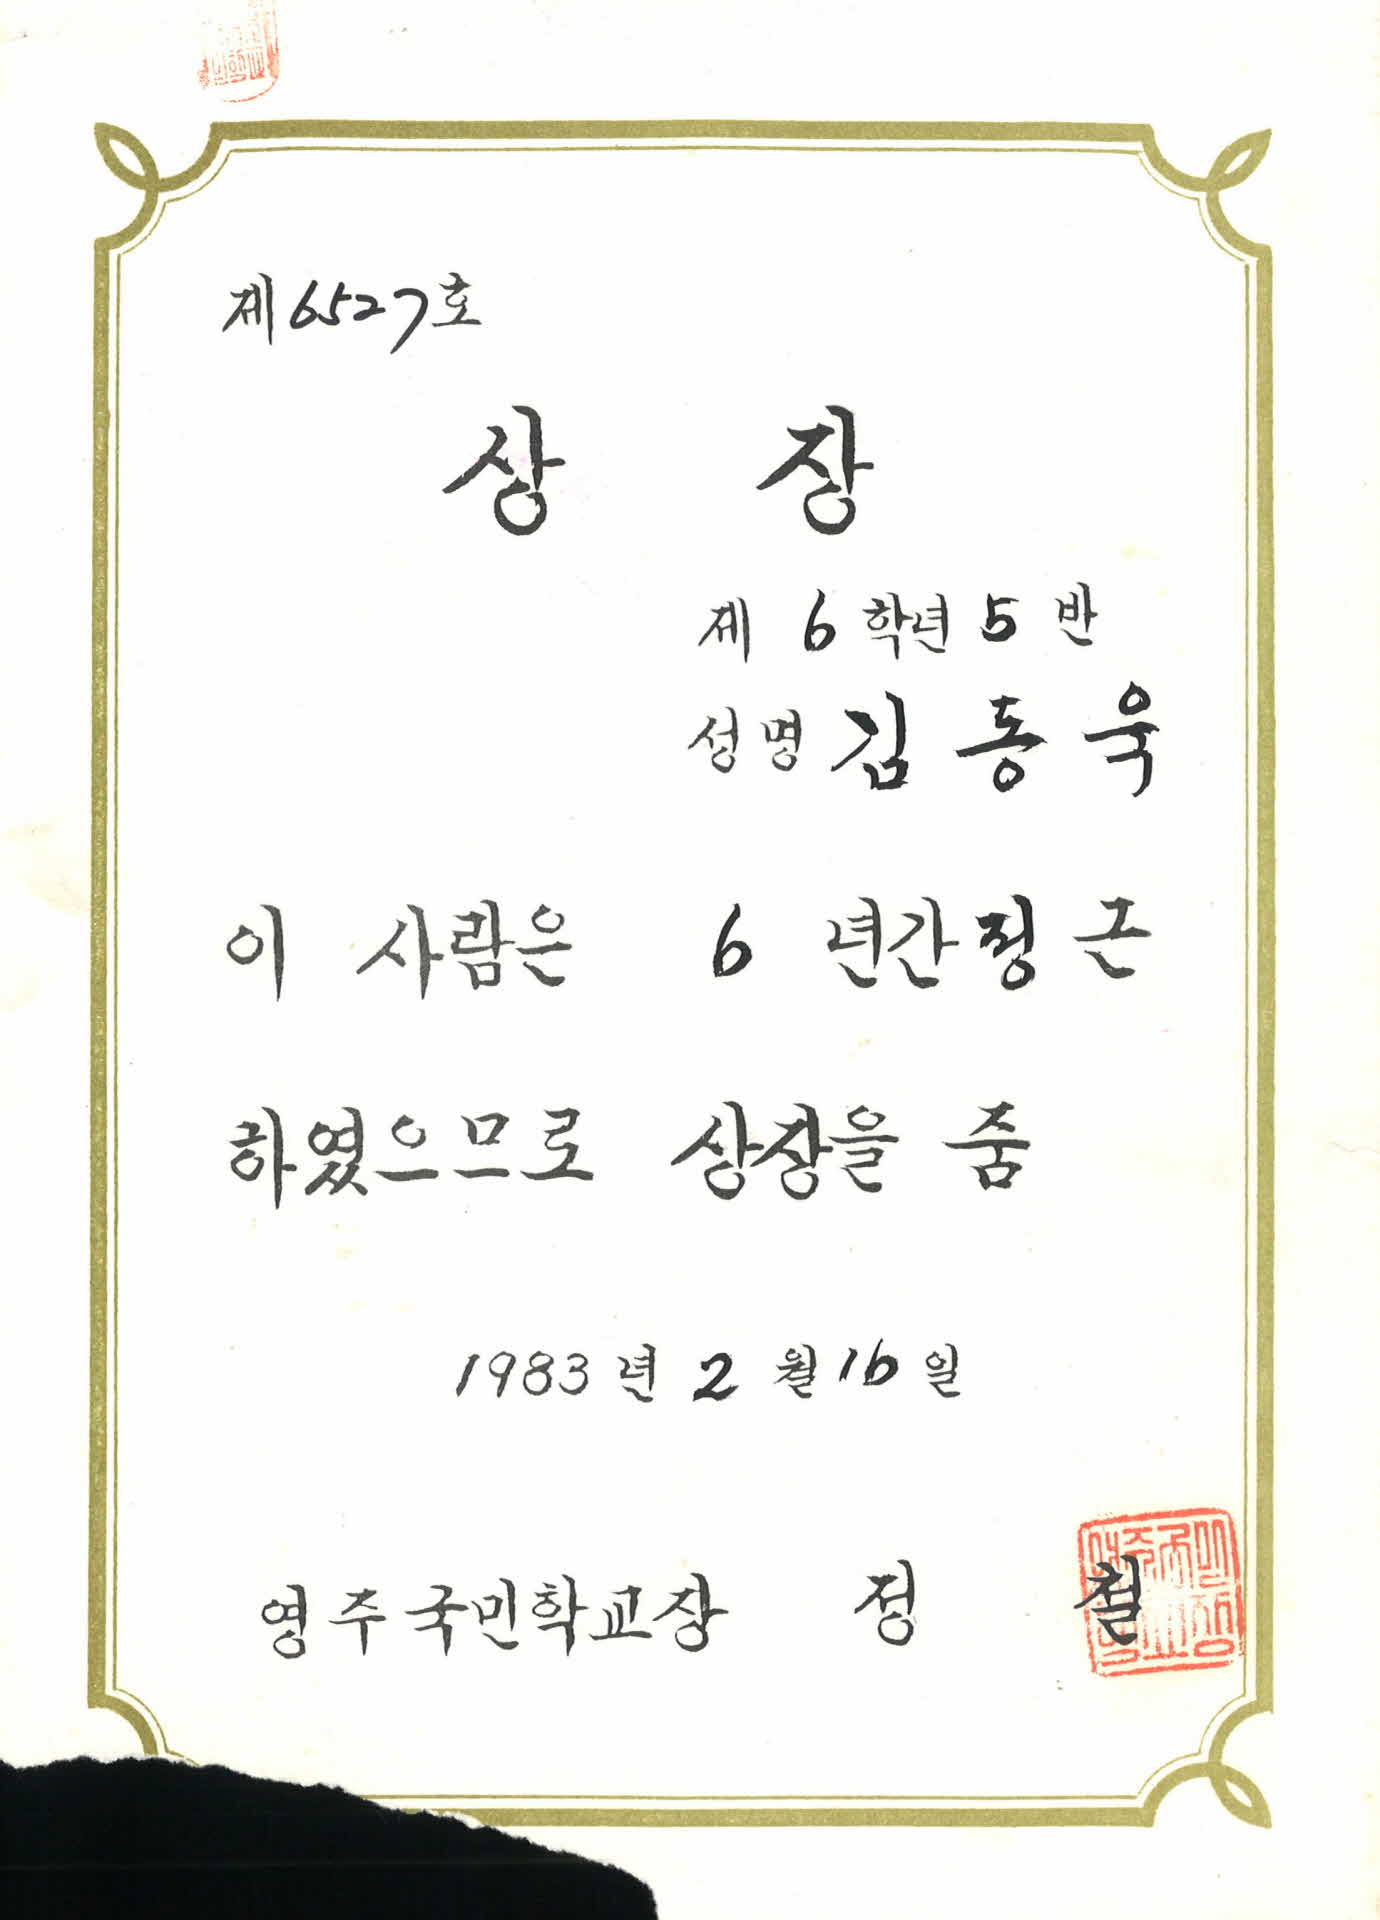 제6527호
상 장
제 6 학년 5 반
성명 김동욱
이 사람은 6 년간 정근
하였으므로 상장을 줌
1983 년 2 월 16 일
영주국민학교장 정 철